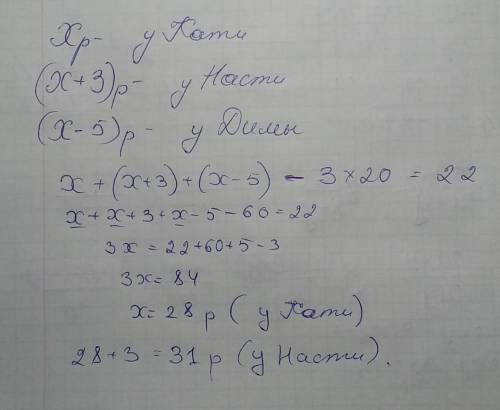 Xр- у Кати
(x+3)р- у Насти
(x-5)р- у Димы
x + (x+3) + (x-5) - 3 × 20 = 22
x + x + 3 + x - 5 - 60 = 22
3x = 22 + 60 + 5 - 3
3x = 84
x = 28 р ( у Кати)
28 + 3 = 31 р (у Насти).